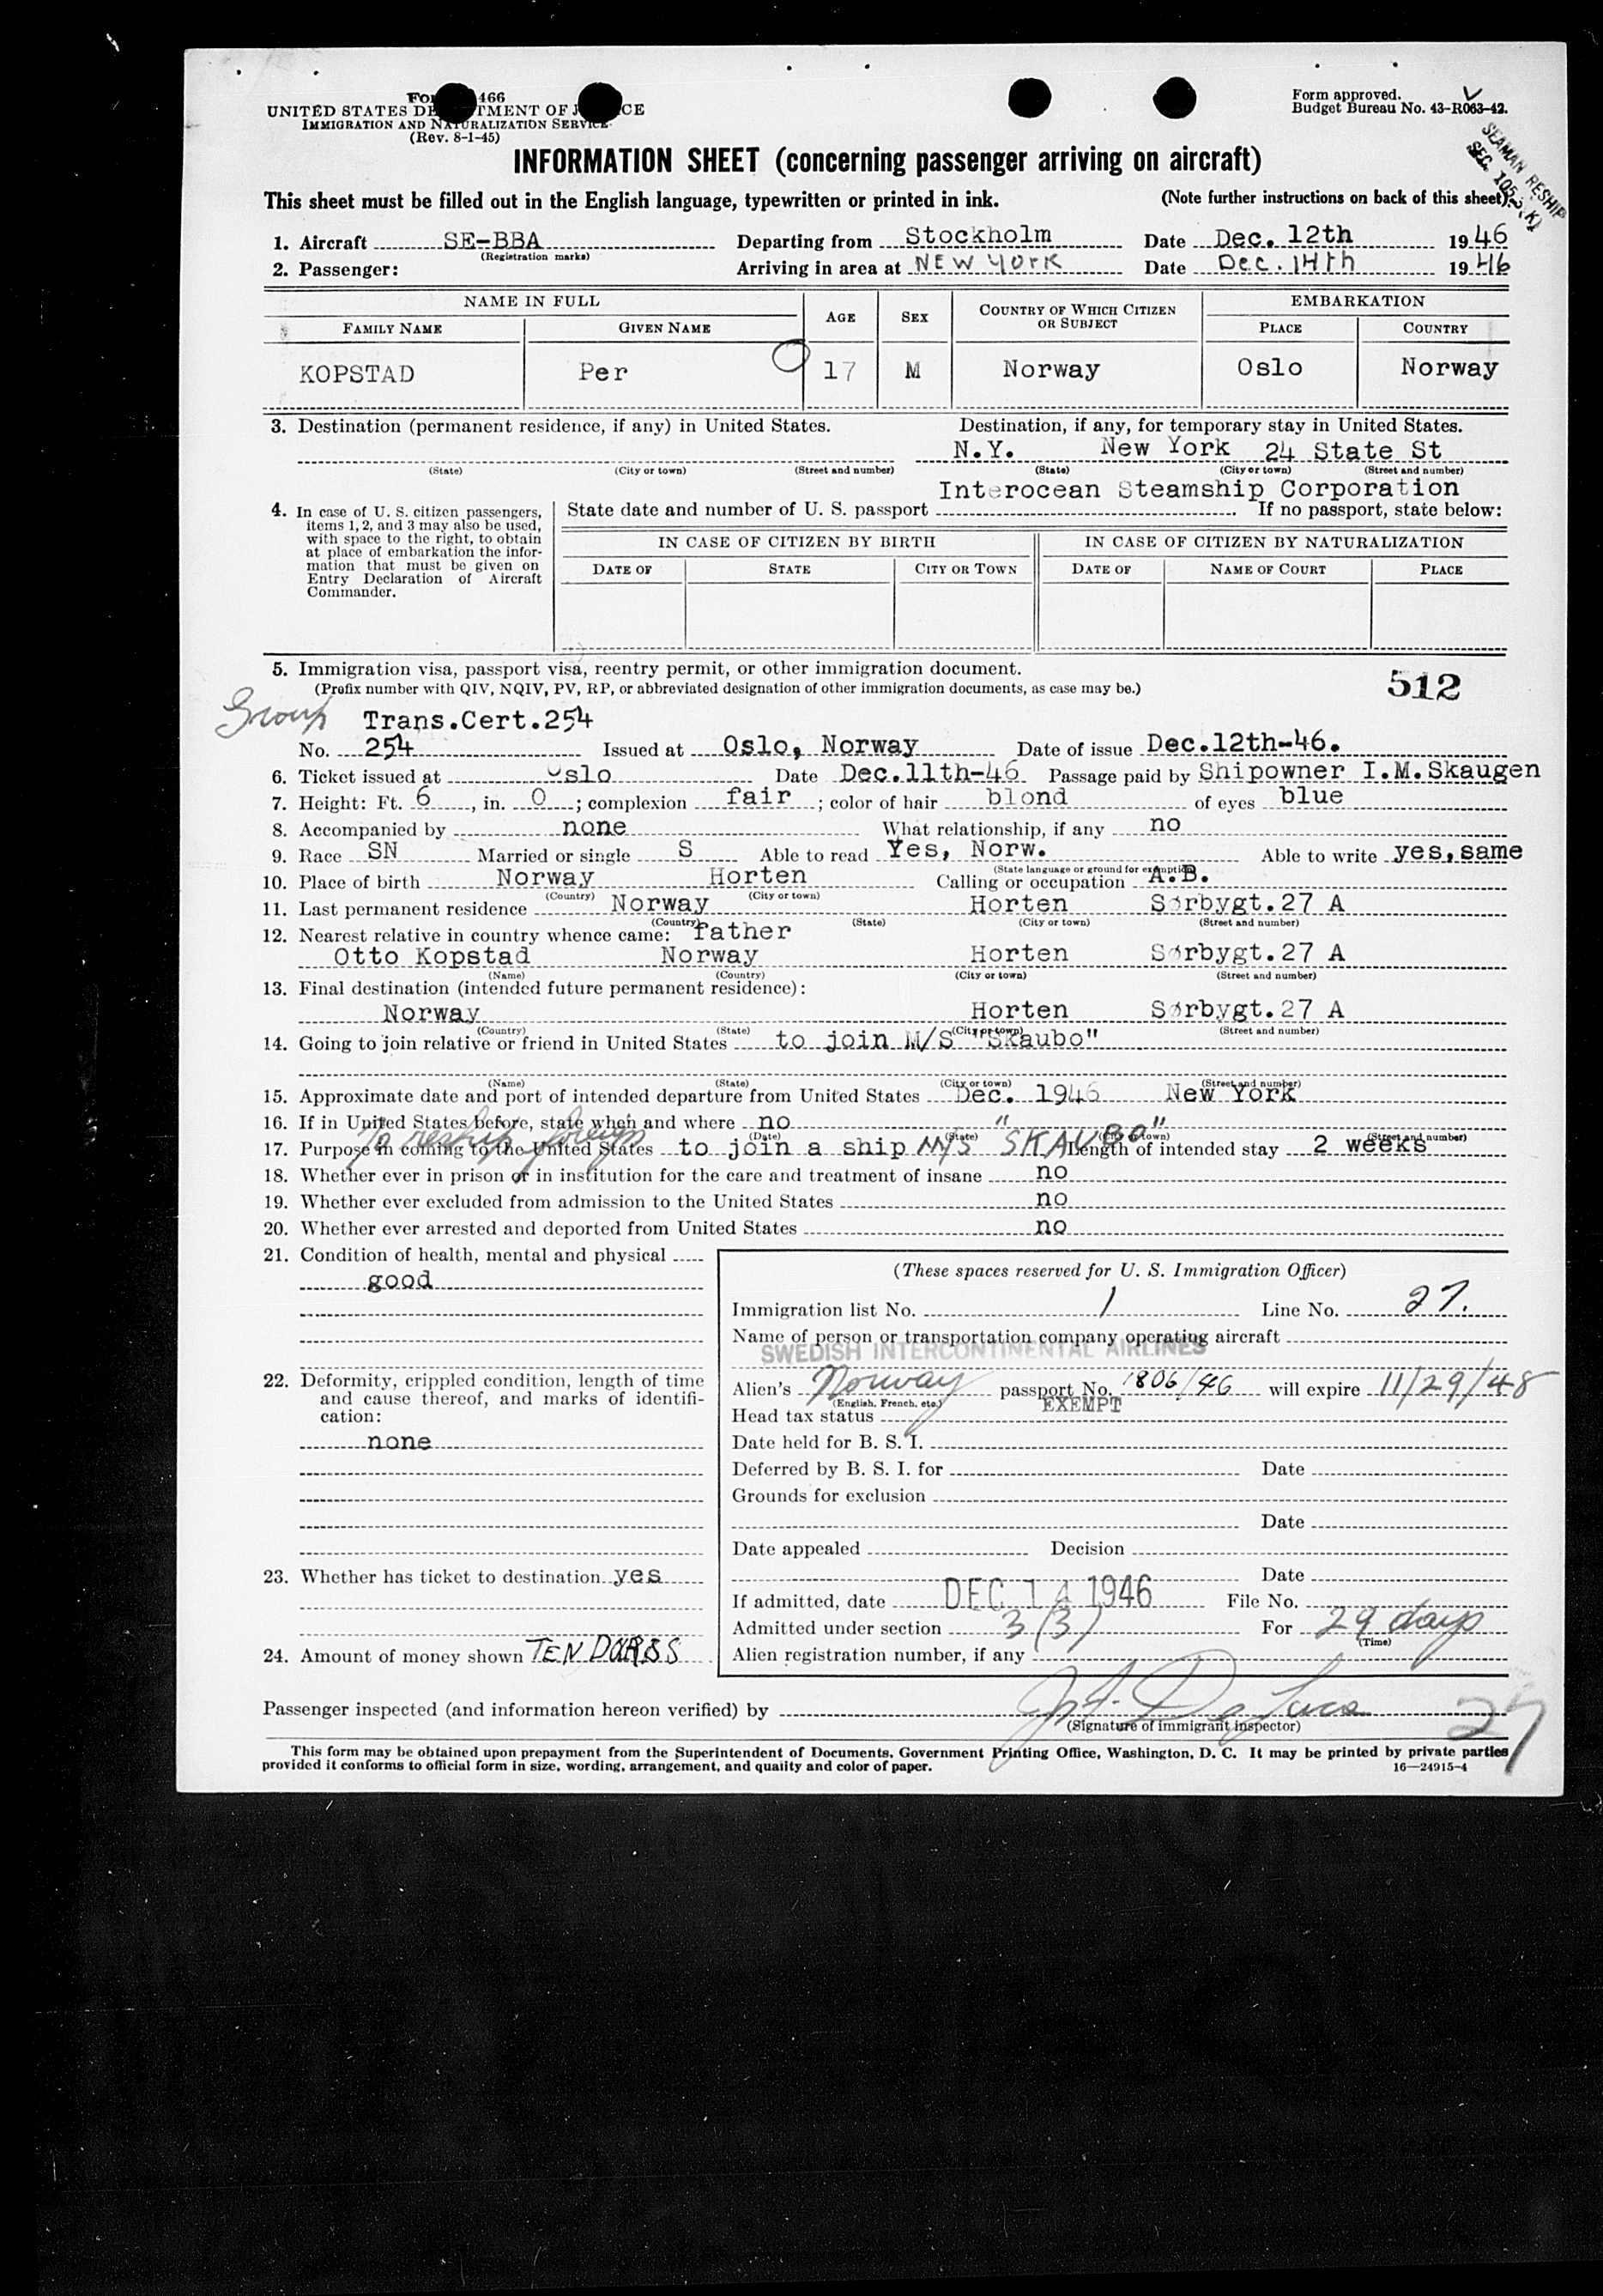 For 466
UNITED STATES DE TMENT OF J CE
IMMIGRATION AND NATURALIZATION SERVICE
(Rev. 8-1-45)
Form approved.
Budget Bureau No. 43-R063-42.
SEAMAN RESHIP
SEC. 105-3(K)
INFORMATION SHEET (concerning passenger arriving on aircraft)
This sheet must be filled out in the English language, typewritten or printed in ink. (Note further instructions on back of this sheet)
1. Aircraft SE-BBA Departing from Stockholm Date Dec. 12th 1946
(Registration marks)
2. Passenger: Arriving in area at NEW YORK Date Dec. 14th 1946
NAME IN FULL AGE SEX COUNTRY OF WHICH CITIZEN OR SUBJECT EMBARKATION
FAMILY NAME GIVEN NAME PLACE COUNTRY
KOPSTAD Per 17 M Norway Oslo Norway
3. Destination (permanent residence, if any) in United States. Destination, if any, for temporary stay in United States.
N.Y. New York 24 State St
(State) (City or town) (Street and number) (State) (City or town) (Street and number)
Interocean Steamship Corporation
4. In case of U. S. citizen passengers, items 1, 2, and 3 may also be used, with space to the right, to obtain at place of embarkation the information that must be given on Entry Declaration of Aircraft Commander.
State date and number of U. S. passport If no passport, state below:
IN CASE OF CITIZEN BY BIRTH IN CASE OF CITIZEN BY NATURALIZATION
DATE OF STATE CITY OR TOWN DATE OF NAME OF COURT PLACE
5. Immigration visa, passport visa, reentry permit, or other immigration document.
(Prefix number with QIV, NQIV, PV, RP, or abbreviated designation of other immigration documents, as case may be.)
512
Group Trans.Cert.254
No. 254 Issued at Oslo, Norway Date of issue Dec.12th-46.
6. Ticket issued at Oslo Date Dec.11th-46 Passage paid by Shipowner I.M.Skaugen
7. Height: Ft. 6, in. 0; complexion fair; color of hair blond of eyes blue
8. Accompanied by none What relationship, if any no
9. Race SN Married or single S Able to read Yes, Norw. Able to write yes,same
(State language or ground for exemption)
10. Place of birth Norway Horten Calling or occupation A.B.
(Country) (City or town)
11. Last permanent residence Norway Horten Sørbygt.27 A
(Country) (State) (City or town) (Street and number)
12. Nearest relative in country whence came: father
Otto Kopstad Norway Horten Sørbygt.27 A
(Name) (Country) (City or town) (Street and number)
13. Final destination (intended future permanent residence):
Norway Horten Sørbygt.27 A
(Country) (State) (City or town) (Street and number)
14. Going to join relative or friend in United States to join M/S "Skaubo"
(Name) (State) (City or town) (Street and number)
15. Approximate date and port of intended departure from United States Dec. 1946 New York
16. If in United States before, state when and where no
(Date) (State) (City or town) (Street and number)
To reship foreign
17. Purpose in coming to the United States to join a ship M/S "SKAUBO" Length of intended stay 2 weeks
18. Whether ever in prison or in institution for the care and treatment of insane no
19. Whether ever excluded from admission to the United States no
20. Whether ever arrested and deported from United States no
21. Condition of health, mental and physical
good
22. Deformity, crippled condition, length of time and cause thereof, and marks of identification:
none
23. Whether has ticket to destination yes
24. Amount of money shown TEN
(These spaces reserved for U. S. Immigration Officer)
Immigration list No. 1 Line No. 27.
Name of person or transportation company operating aircraft
SWEDISH INTERCONTINENTAL AIRLINES
Alien's Norway passport No. 1806/46 will expire 11/29/48
(English, French, etc.)
Head tax status EXEMPT
Date held for B. S. I.
Deferred by B. S. I. for Date
Grounds for exclusion
Date
Date appealed Decision
Date
If admitted, date DEC 14 1946 File No.
Admitted under section 3(3) For 29 days
(Time)
Alien registration number, if any
Passenger inspected (and information hereon verified) by
(Signature of immigrant inspector)
27
This form may be obtained upon prepayment from the Superintendent of Documents, Government Printing Office, Washington, D. C. It may be printed by private parties
provided it conforms to official form in size, wording, arrangement, and quality and color of paper. 16—24915-4